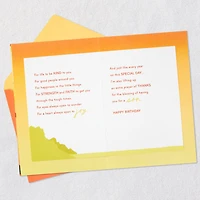 For life to be KIND to you.
For good people around you.
For happiness in the little things.
For STRENGTH and FAITH to get you
through the tough times.
For your dreams
For a heart always open to joy.
And just like every year
on this SPECIAL DAY
I'm also lifting up
an extra prayer of THANKS
for the blessing of having
you in
HAPPY BIRTHDAY